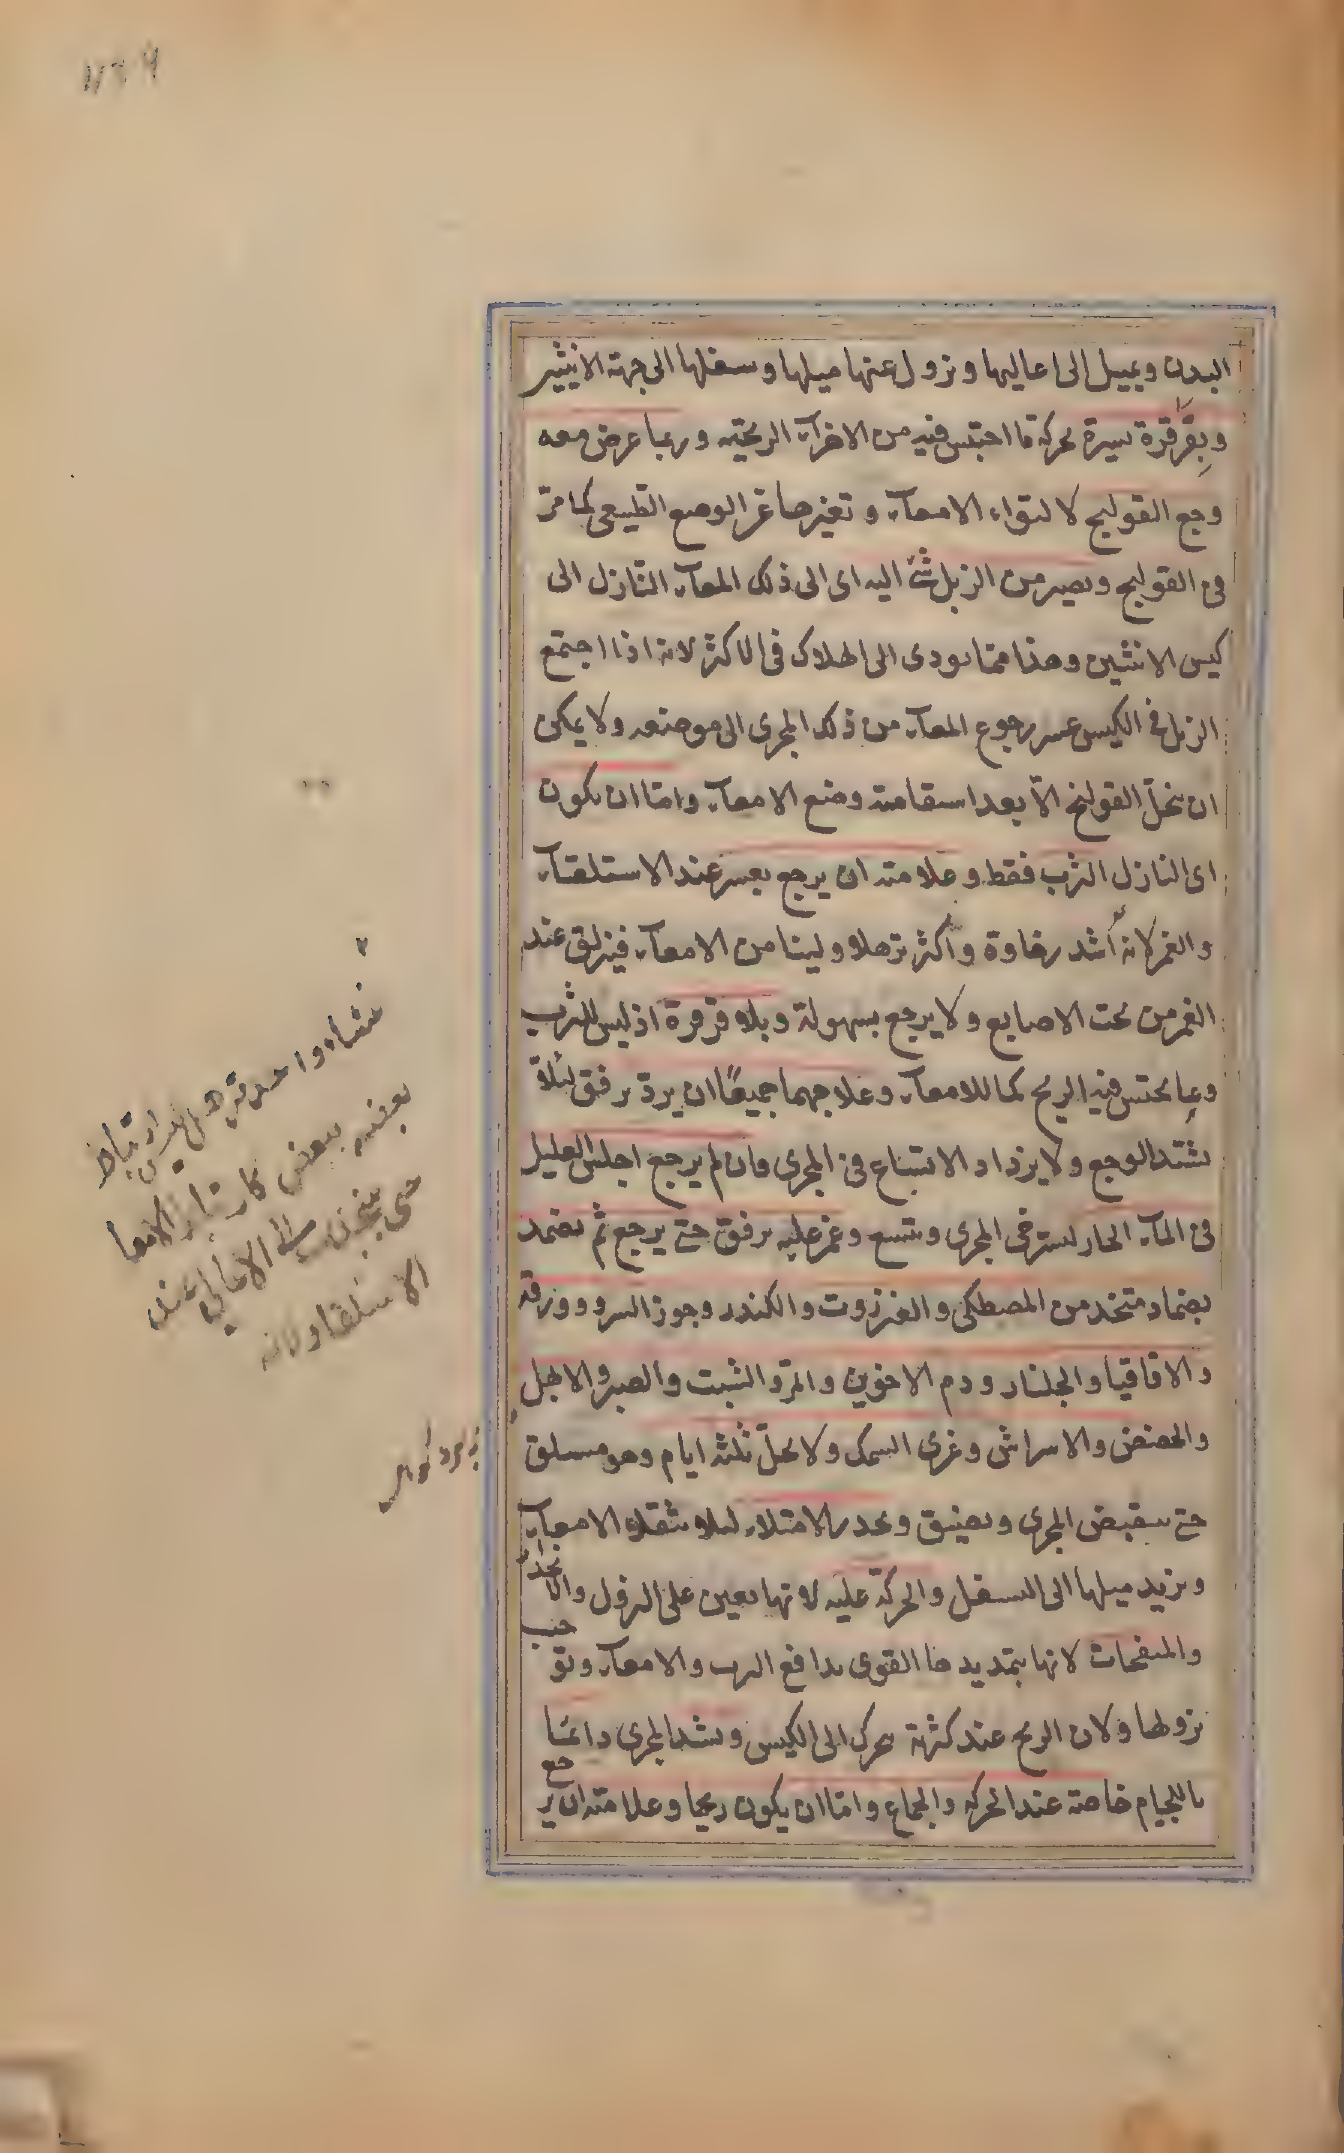 البدن ويميل الى اعاليها ونزول عنها ميلها وسفلها الى جهة الانثيين
وبقرقرة يسيرة لحركة ما احتبس فيه من الاجزاء الريحيه وربما عرض معه
وجع القولنج لالتواء الامعآء وتغيرها عن الوضع الطبيعى كما مرّ
فى القولنج ويصير من الزبل شئ اليه اى الى ذلك المعآء النازل الى
كيس الانثيين وهذا مما يودى الى الهلاك فى الاكثر لانه اذا اجتمع
الزبل فى الكيس عسر رجوع المعآء من ذلك المجرى الى موضعه ولا يمكن
ان ينحلّ القولنج الّا بعد استقامة وضع الامعآء واما ان يكون
اى النازل الثرب فقط وعلامته ان يرجع بعسر عند الاستلقآء
والغمز لانه أشد رخاوة وأكثر ترهلا ولينا من الامعآء فينزلق عند
الغمز من تحت الاصابع ولا يرجع بسهولة وبلا قرقرة اذ ليس للثرب
وعا يحتبس فيه الريح كما للامعآء وعلاجهما جميعًا ان يردّ برفق لئلا
يشتد الوجع ولا يزداد الاتساع فى المجرى فان لم يرجع اجلس العليل
فى المآء الحار ليسترخى المجرى ويتسع وغمز عليه برفق حتى يرجع ثم يضمد
بضماد متخذ من المصطكى والعنزروت والكندر وجوز السرو وورقه
والاقاقيا والجلنار ودم الاخوين والمرّ والشبت والصبر والابهل
والحضض والاسراش وغرى السمك ولا يحلّ ثلثه ايام وهو مستلق
حتى ينقبض المجرى ويضيق ويحذر الامتلاء لئلا يثقله الامعآء
ويزيد ميلها الى السفل والحركة عليه لانها يعين على النزول
والمنفخات لانها بتمديدها القوى يدافع الثرب والامعآء وتوجب
نزولها ولان الريح عند كثرته يتحرك الى الكيس ويشد المجرى دائما
باللجام خاصة عند الحركه والجماع واما ان يكون ريحا وعلامته ان يرجع
بعضه ببعض
الاستلقاء ولانه